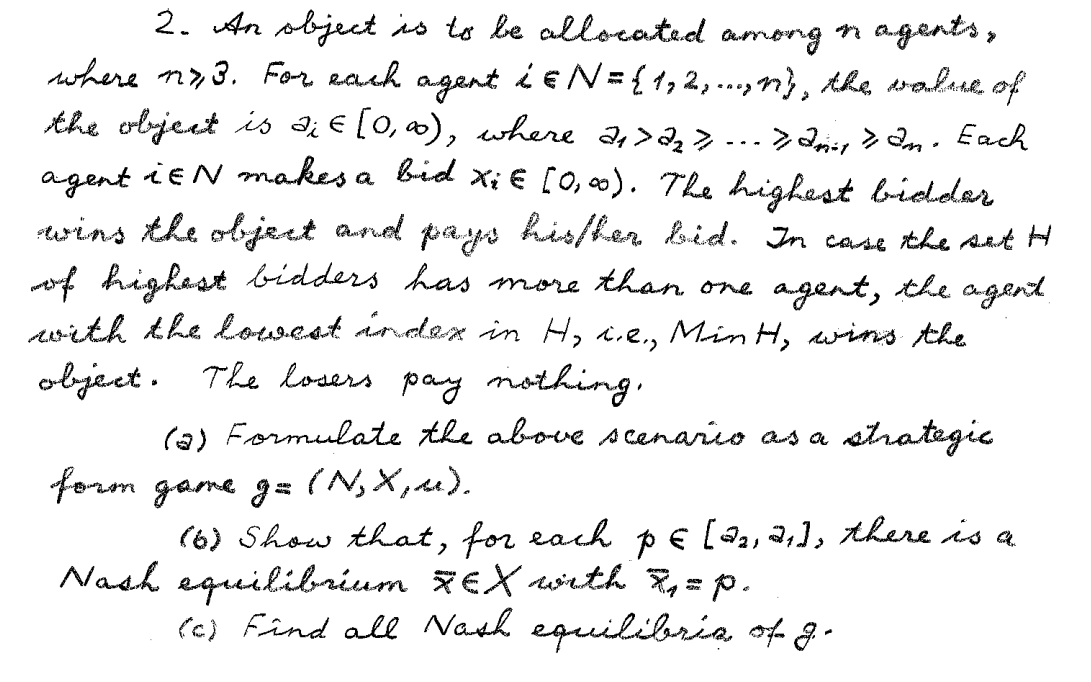 2. An object is to be allocated among n agents,
where n⩾3. For each agent i ∈ N = {1, 2, ..., n}, the value of
the object is a_i ∈ [0, ∞), where a_1 > a_2 ⩾ ... ⩾ a_{n-1} ⩾ a_n. Each
agent i ∈ N makes a bid x_i ∈ [0, ∞). The highest bidder
wins the object and pays his/her bid. In case the set H
of highest bidders has more than one agent, the agent
with the lowest index in H, i.e., Min H, wins the
object. The losers pay nothing.
(a) Formulate the above scenario as a strategic
form game g = (N, X, u).
(b) Show that, for each p ∈ [a_2, a_1], there is a
Nash equilibrium x̄ ∈ X with x̄_1 = p.
(c) Find all Nash equilibria of g.